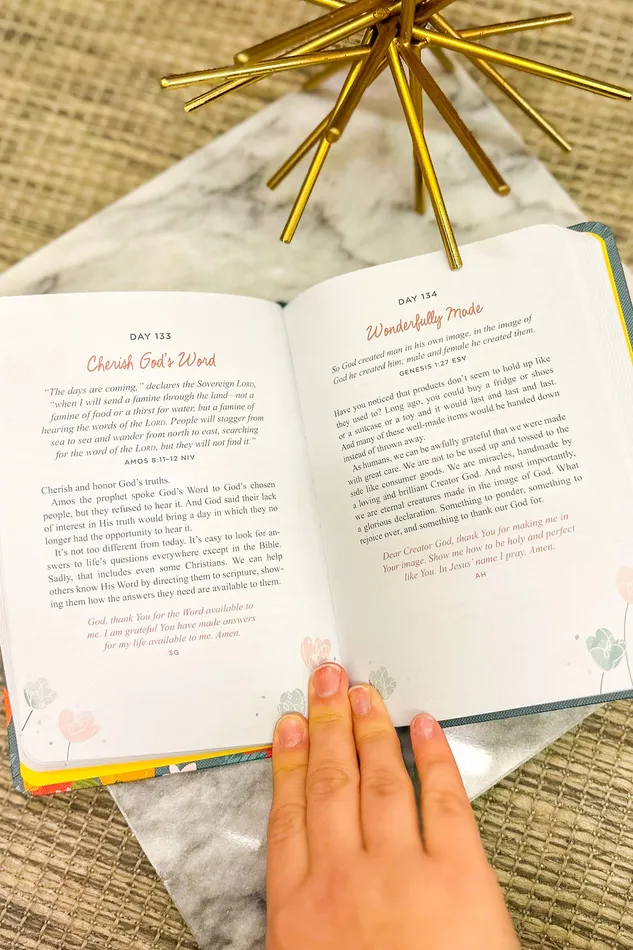 DAY 133
Cherish God's Word
"The days are coming," declares the Sovereign LORD,
"when I will send a famine through the land—not a
famine of food or a thirst for water, but a famine of
hearing the words of the LORD. People will stagger from
sea to sea and wander from north to east, searching
for the word of the LORD, but they will not find it."
AMOS 8:11–12 NIV
Cherish and honor God's truths.
Amos the prophet spoke God's Word to God's chosen
people, but they refused to hear it. And God said their lack
of interest in His truth would bring a day in which they no
longer had the opportunity to hear it.
It's not too different from today. It's easy to look for an-
swers to life's questions everywhere except in the Bible.
Sadly, that includes even some Christians. We can help
others know His Word by directing them to scripture, show-
ing them how the answers they need are available to them.
God, thank You for the Word available to
me. I am grateful You have made answers
for my life available to me. Amen.
SG
DAY 134
Wonderfully Made
So God created man in his own image, in the image of
God he created him; male and female he created them.
GENESIS 1:27 ESV
Have you noticed that products don't seem to hold up like
they used to? Long ago, you could buy a fridge or shoes
or a suitcase or a toy and it would last and last and last.
And many of these well-made items would be handed down
instead of thrown away.
As humans, we can be awfully grateful that we were made
with great care. We are not to be used up and tossed to the
side like consumer goods. We are miracles, handmade by
a loving and brilliant Creator God. And most importantly,
we are eternal creatures made in the image of God. What
a glorious declaration. Something to ponder, something to
rejoice over, and something to thank our God for.
Dear Creator God, thank You for making me in
Your image. Show me how to be holy and perfect
like You. In Jesus' name I pray. Amen.
AH